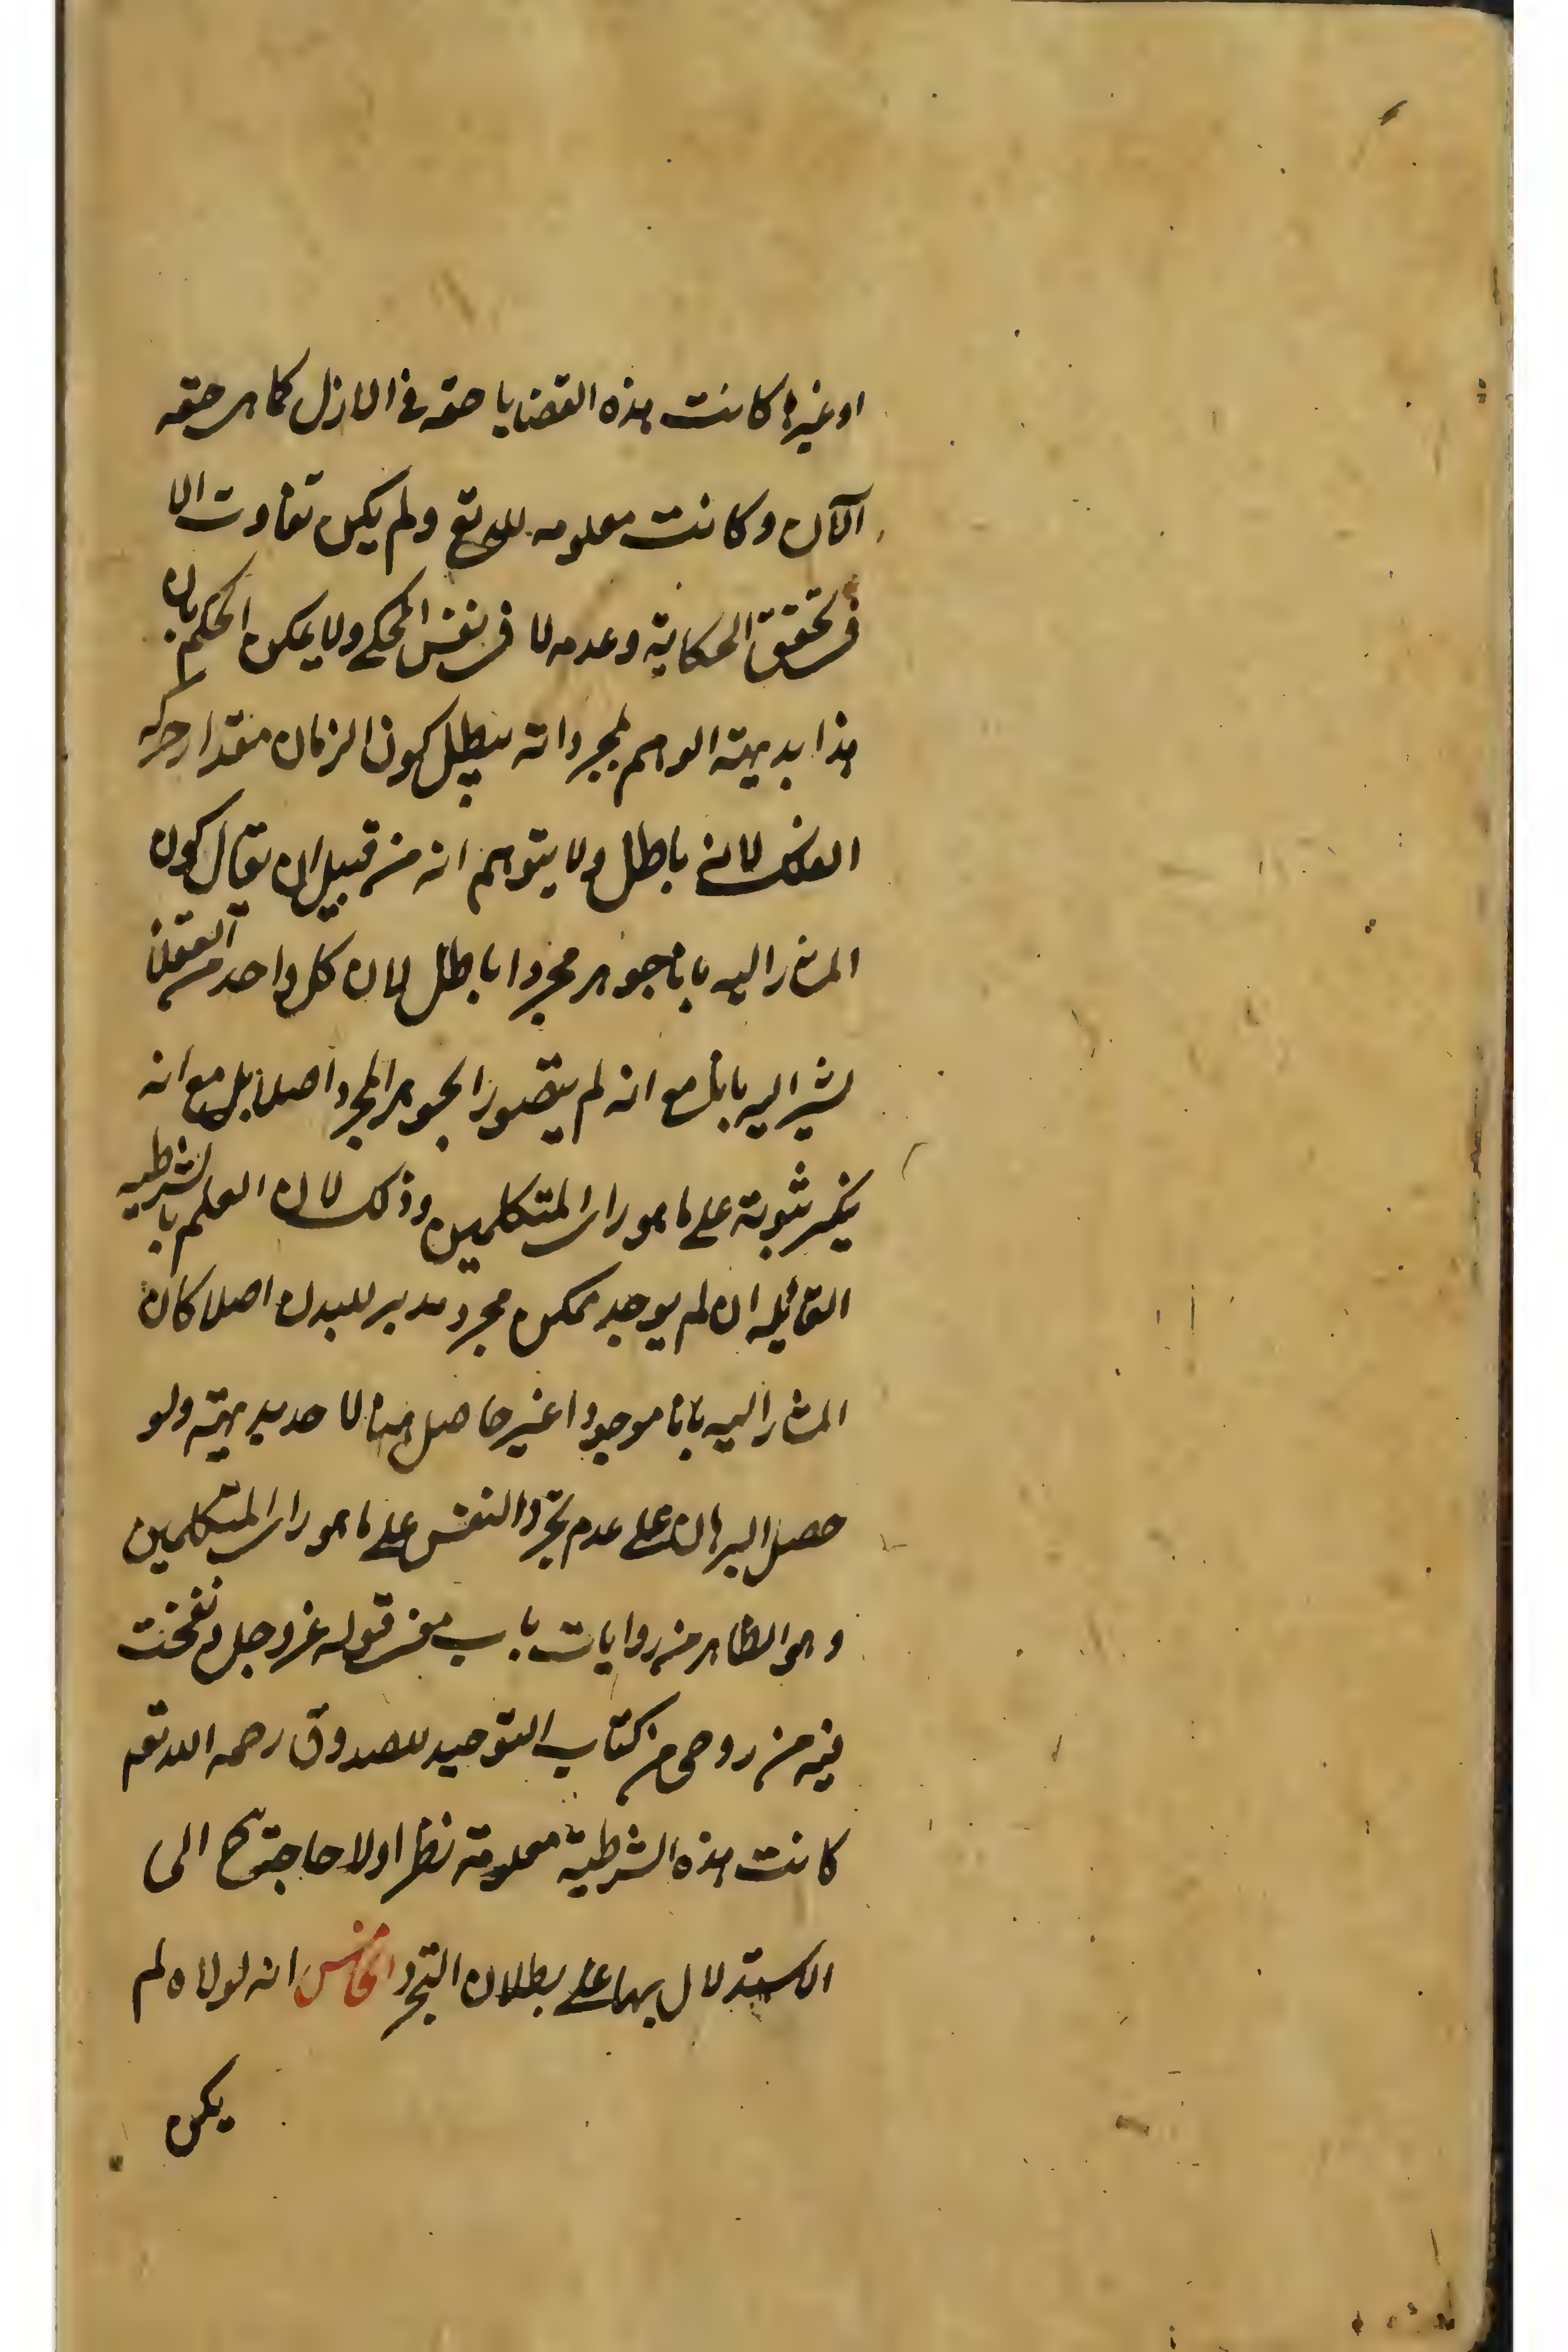 او غيرها كانت هذه القضايا حقه في الازل كما هي حقه
الآن وكانت معلومه لله تع ولم يكن تفاوت الا
في تحقق الحكاية وعدمه لا في نفس المحكي ولا يمكن الحكم بان
هذا بديهته الوهم لمجرد انه يبطل كون الزمان مقدار حركه
الفلك لانه باطل ولا يتوهم انه من قبيل ان يقال كون
المشار اليه بانا جوهر مجردا باطل لان كل واحد من العقلا
يشير اليه بانا مع انه لم يتصور الجوهر المجرد اصلا بل مع انه
ينكر ثبوته على ما هو راى المتكلمين وذلك لان العلم بالشرطيه
القائله ان لم يوجد ممكن مجرد مدبر للبدن اصلا كان
المشار اليه بانا موجودا غير حاصل هنا لاحد بديهته ولو
حصل البرهان على عدم تجرد النفس على ما هو راى المتكلمين
وهو الظاهر من روايات باب معنى قوله عز وجل ونفخت
فيه من روحى من كتاب التوحيد للصدوق رحمه الله تع
كانت هذه الشرطية معلومة نظرا ولا حاجة ح الى
الاستدلال بها على بطلان التجرد الخامس انه لولاه لم
يكن